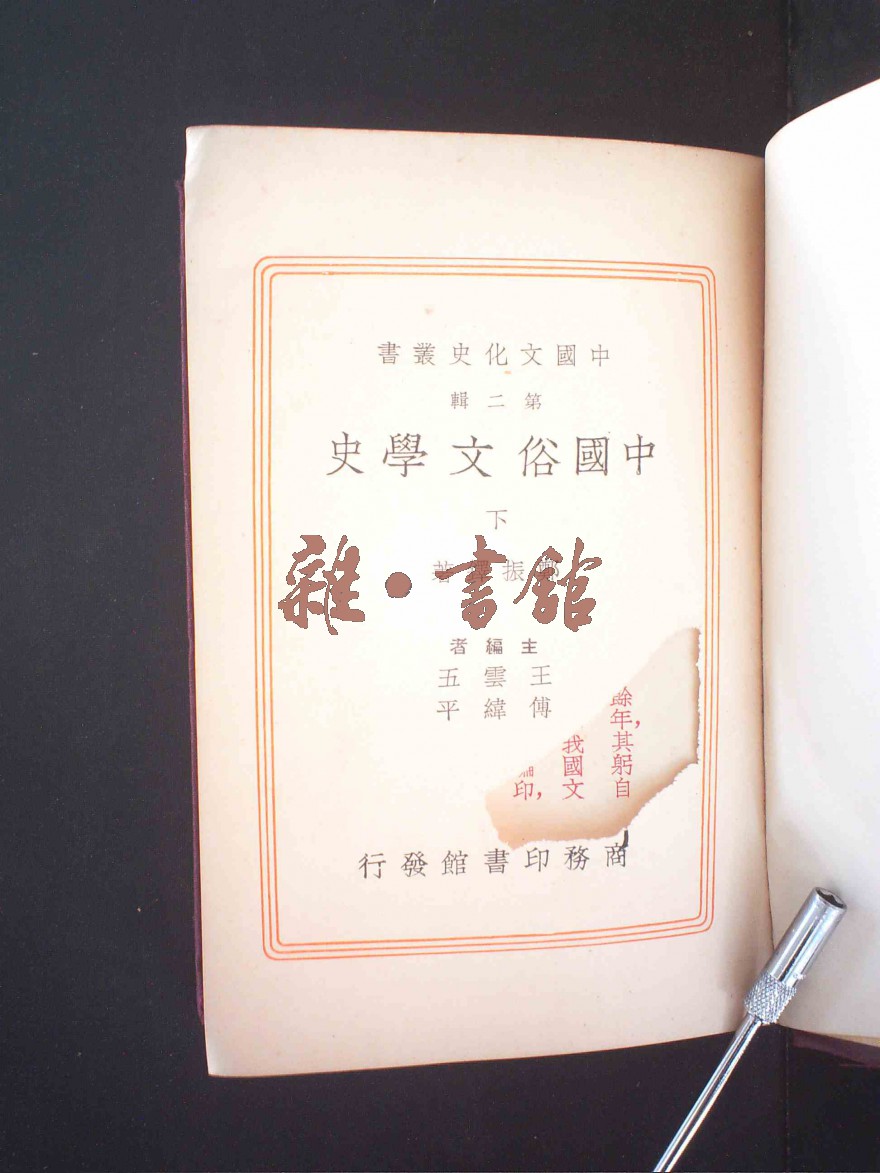 中國文化史叢書
第二輯
中國俗文學史
下
鄭振鐸著
雜·書館
主編者
王雲五
傅緯平
餘年，其躬自
我國文
印，
商務印書館發行